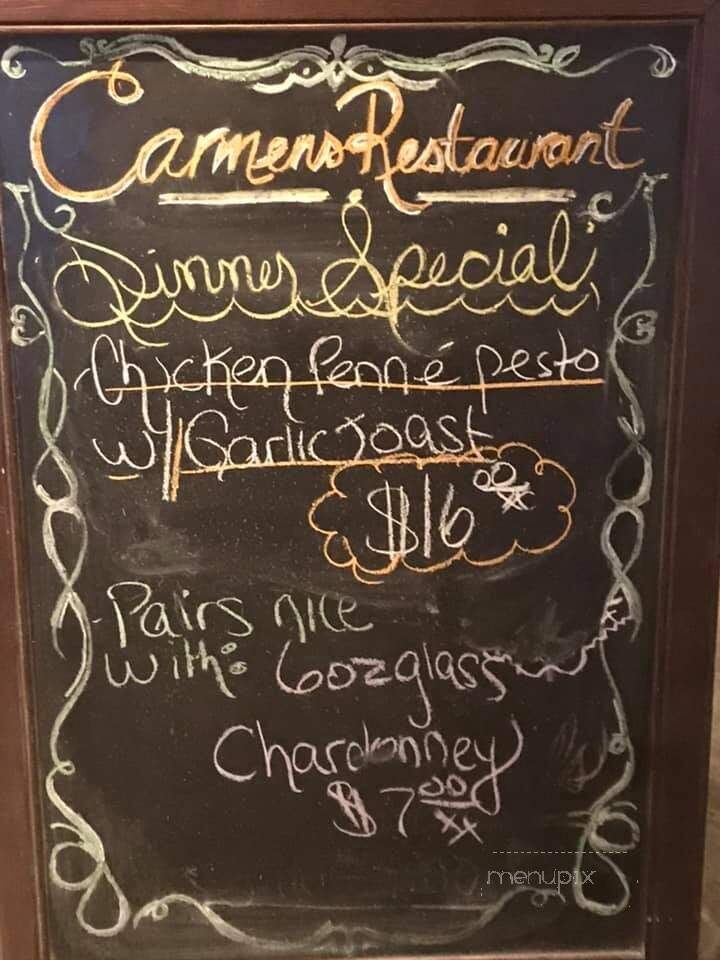 Carmens Restaurant
Dinner Special
Chicken Penné pesto
w/ Garlic Toast
$16 00/xx
Pairs nice
with: 6oz glass
Chardonney
$7 00/xx
menupix